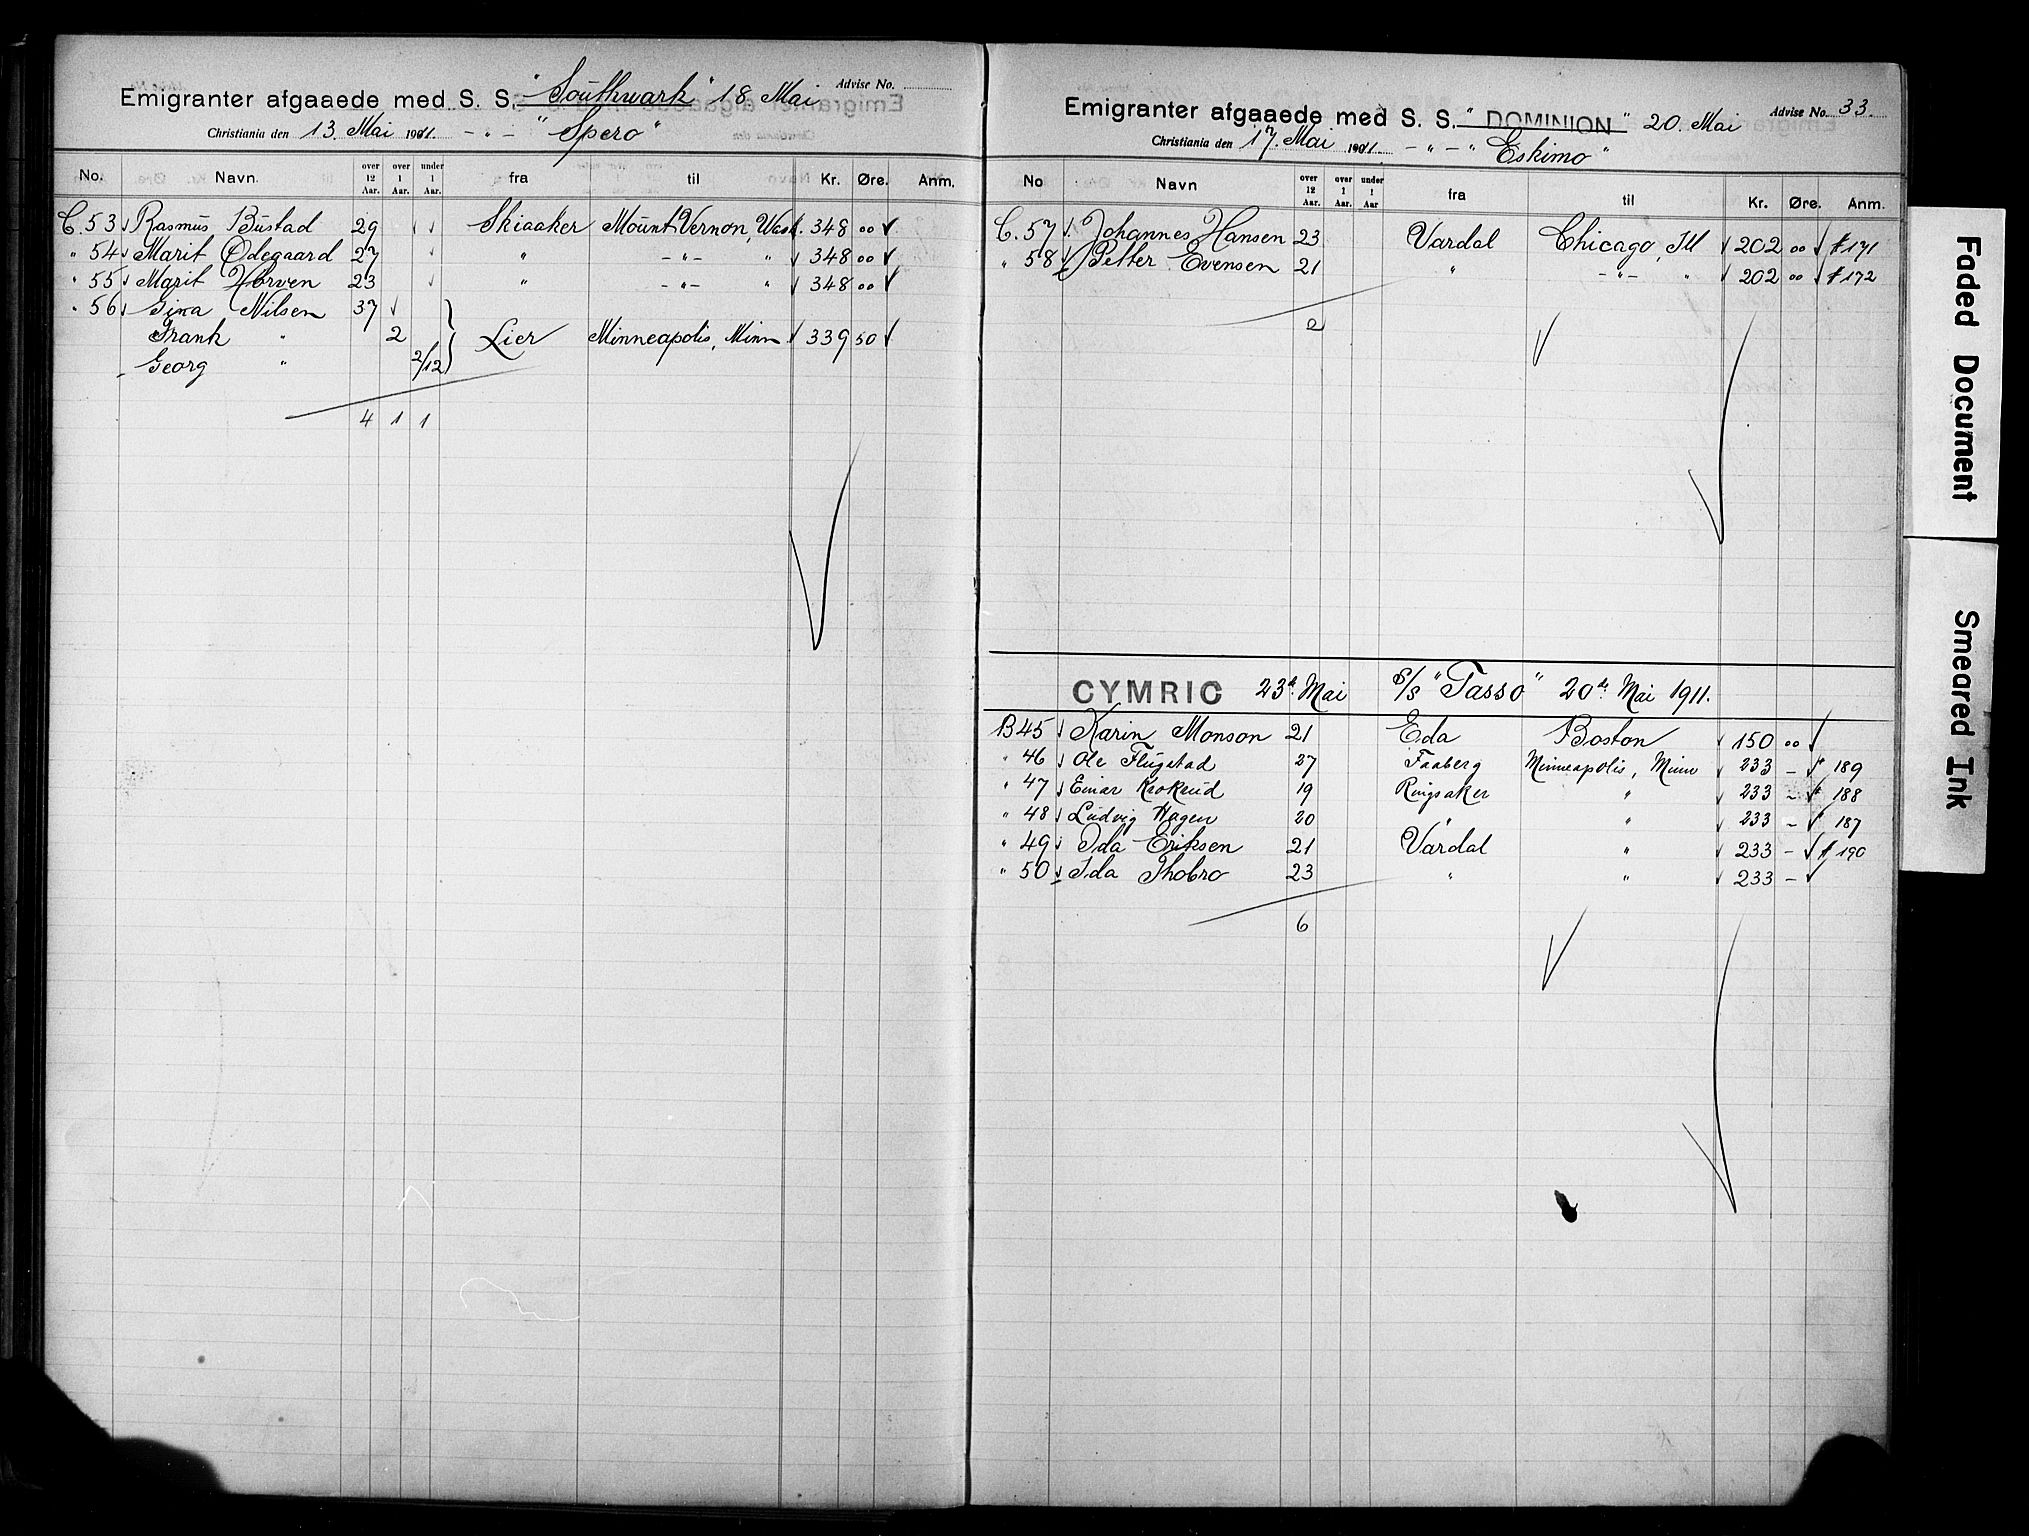 Emigranter afgaaede med S. S. "Southwark" 18 Mai Advise No.
Christiania den 13. Mai 1911. - " - "Spero"
No. Navn. over 12 Aar. over 1 Aar. under 1 Aar. fra til Kr. Øre. Anm.
C. 53 Rasmus Bustad 29 Skiaaker Mount Vernon, Wash. 348 00
" 54 Marit Ødegaard 27 " - " - " 348 00
" 55 Marit Horven 23 " - " - " 348 00
" 56 Gina Nilsen 37
Frank " 2 Lier Minneapolis, Minn 339 50
Georg " 2/12
4 1 1
Emigranter afgaaede med S. S. "DOMINION" 20. Mai Advise No. 33.
Christiania den 17. Mai 1911. - " - "Eskimo"
No Navn over 12 Aar. over 1 Aar. under 1 Aar fra til Kr. Øre. Anm.
C. 57 Johannes Hansen 23 Vardal Chicago, Ill 202 00 171
" 58 Petter Evensen 21 " - " - " 202 00 172
2
CYMRIC 23d Mai S/S "Tasso" 20de Mai 1911.
B 45 Karin Monson 21 Eda Boston 150 00
" 46 Ole Flugstad 27 Faaberg Minneapolis, Minn 233 - 189
" 47 Einar Krokrud 19 Ringsaker " 233 - 188
" 48 Ludvig Hagen 20 " " 233 - 187
" 49 Ida Eriksen 21 Vardal " 233 - 190
" 50 Ida Thobro 23 " " 233 -
6
Faded Document
Smeared Ink